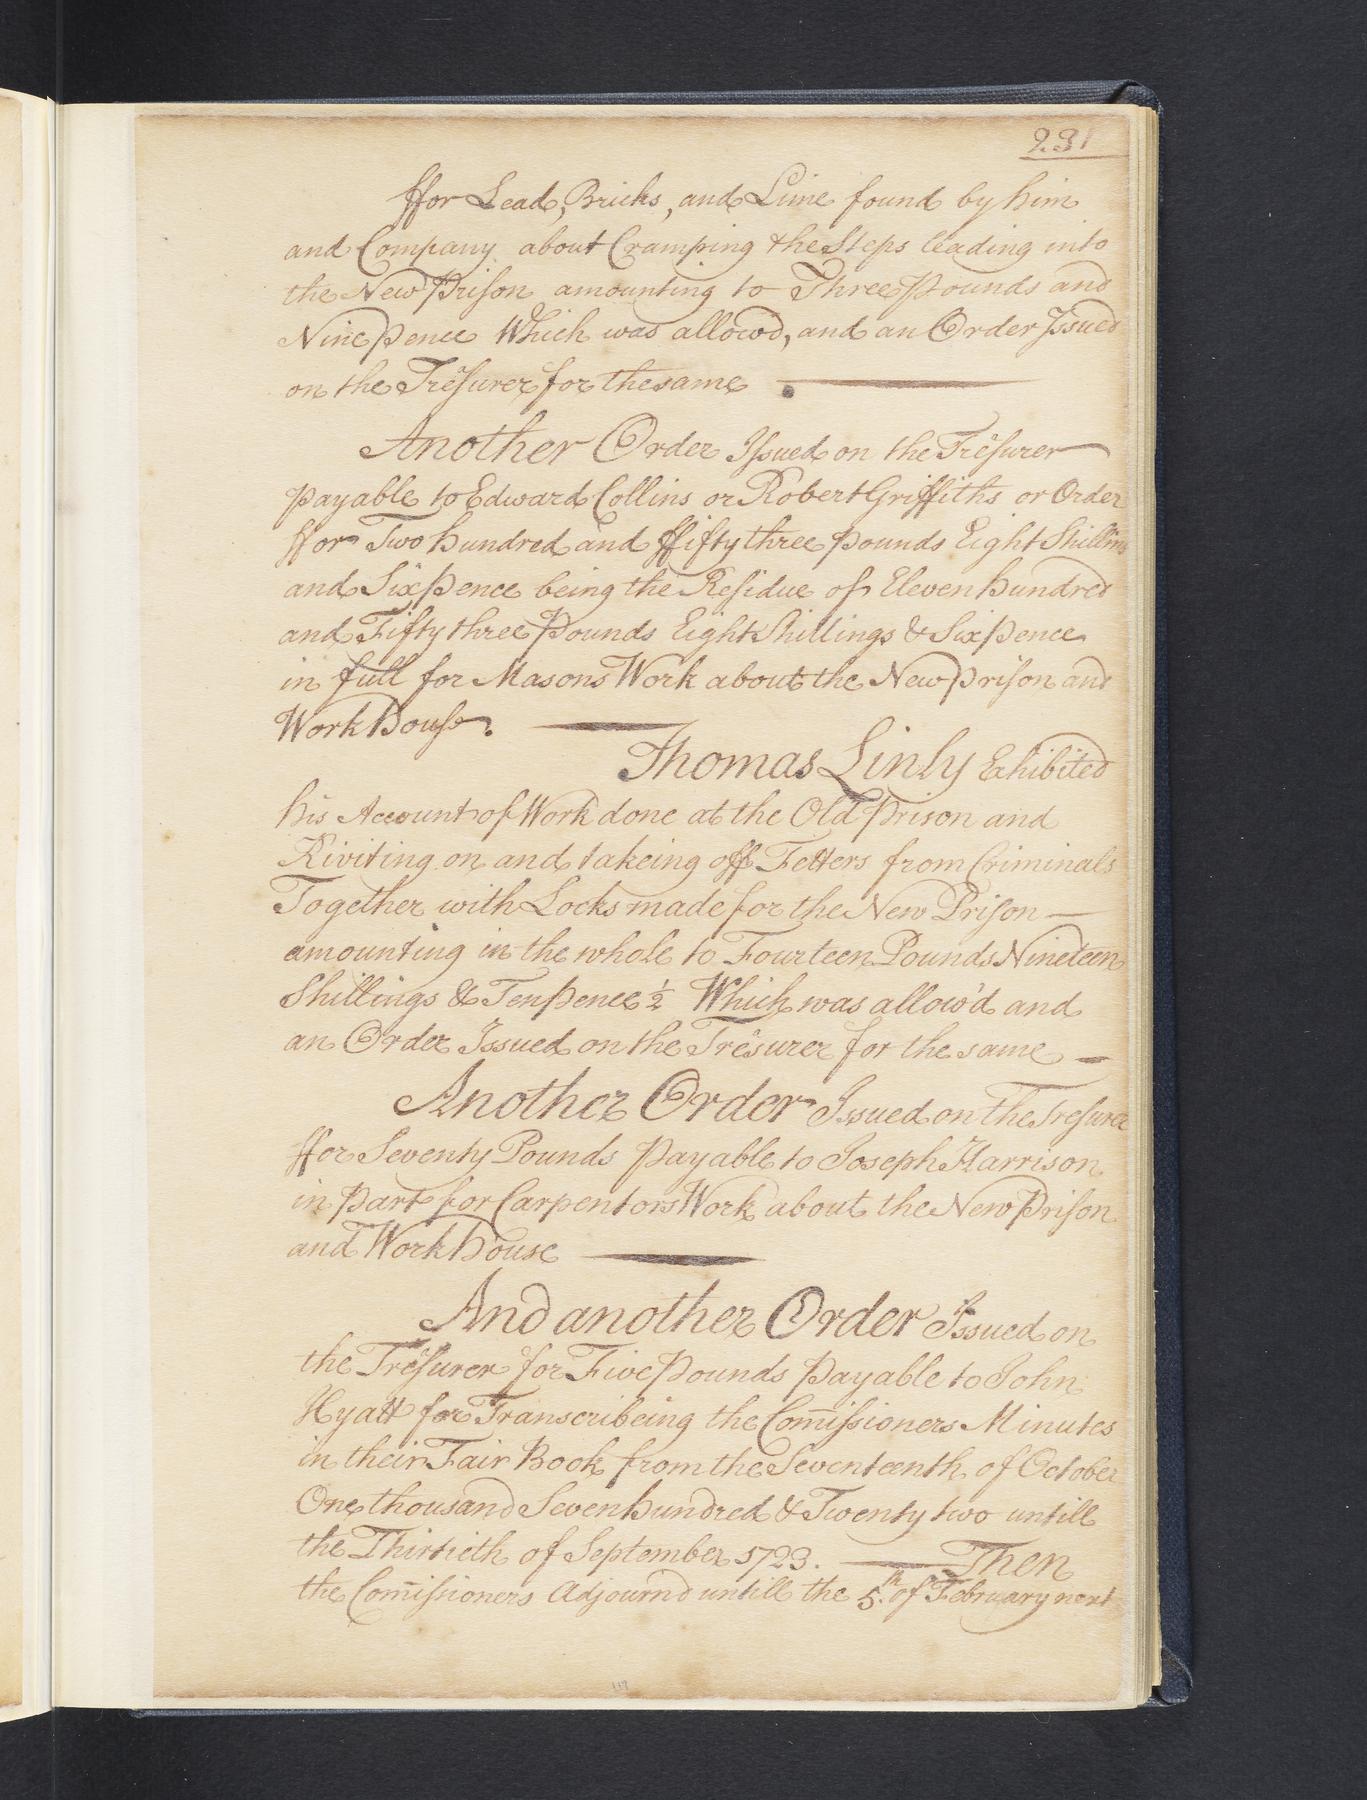 231
ffor Lead, Bricks, and Lime found by him
and Company about Cramping the Steps leading into
the New Prison amounting to Three Pounds and
Nine pence Which was allowd, and an Order Issued
on the Tresurer for the same
Another Order Issued on the Tresurer
payable to Edward Collins or Robert Griffiths or Order
ffor Two hundred and ffifty three pounds Eight Shilling
and Sixpence being the Residue of Eleven hundred
and Fifty three Pounds Eight Shillings & Six pence
in full for Masons Work about the New prison and
Work House.
Thomas Linly Exhibited
his Account of Work done at the Old Prison and
Riviting on and takeing off Fetters from Criminals
Together with Locks made for the New Prison
amounting in the whole to Fourteen Pounds Nineteen
Shillings & Ten pence ½ Which was allow'd and
an Order Issued on the Tresurer for the same
Another Order Issued on the Tresurer
ffor Seventy Pounds payable to Joseph Harrison
in part for Carpentors Work about the New Prison
and Work house
And another Order Issued on
the Tresurer for Five pounds payable to John
Hyatt for Transcribeing the Com̄issioners Minutes
in their Fair Book from the Seventeenth of October
One thousand Seven hundred & Twenty two untill
the Thirtieth of September 1723. Then
the Com̄issioners Adjournd untill the 5.th of February next
119